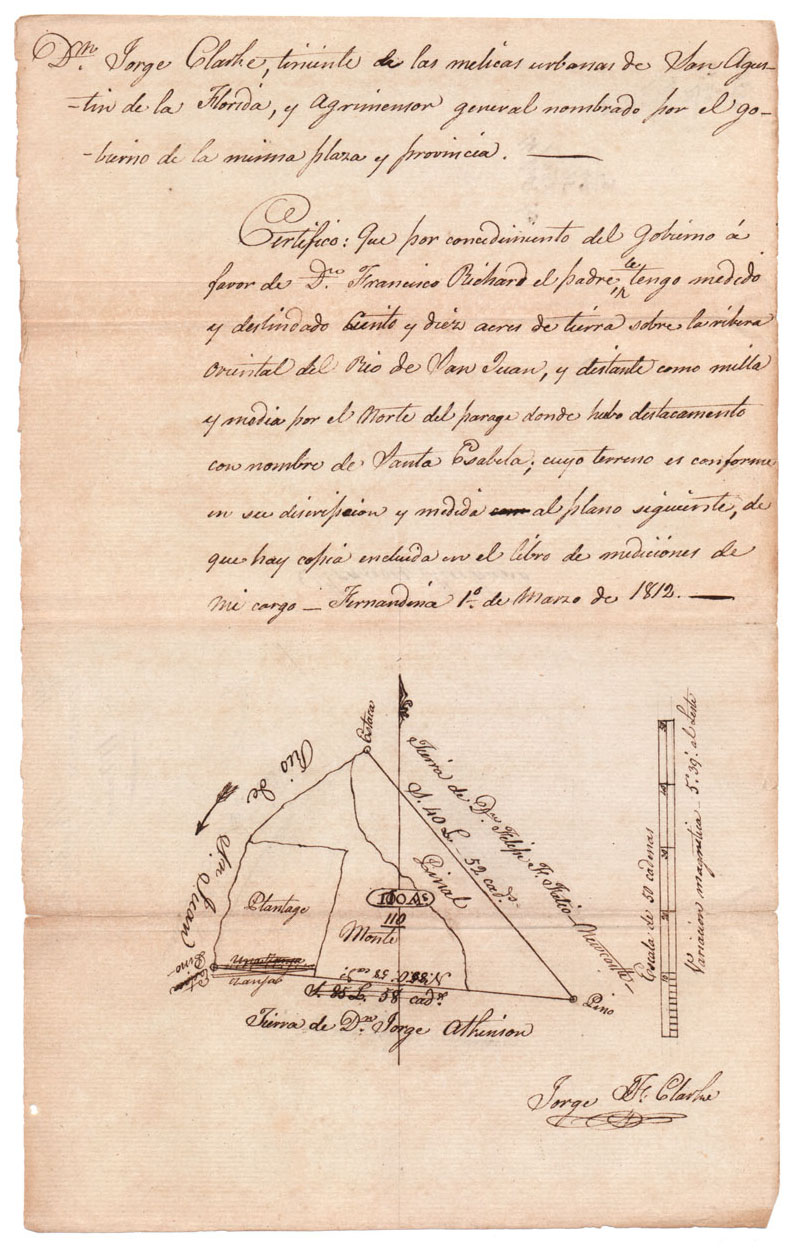 Dn. Jorge Clarke, tiniente de las melicas urbanas de San Agus-
-tin de la Florida, y Agrimensor general nombrado por el go-
-bierno de la misma plaza y provincia.
Certifico: Que por concedimiento del Gobierno á
favor de Dn. Francisco Richard el padre, tengo medido
y deslindado Ciento y diez acres de tierra sobre la ribera
Oriental del Rio de San Juan, y distante como milla
y media por el Norte del parage donde hubo destacamento
con nombre de Santa Ysabela; cuyo terreno es conforme
en su discripcion y medida al plano siguiente, de
que hay copia encluida en el libro de mediciones de
mi cargo — Fernandina 1o. de Marzo de 1812.
Estaca
Rio de
Sn. Juan
Tierra de Dn. Felipe F. Fatio
S. 40 L. - 52 cads.
Pinal
Plantage
110
Monte
Zanja
Pino
S. 85 L. 58 cads.
Pino
Tierra de Dn. Jorge Atkinson
Escala de 50 cadenas
Variacion magnetica - 5°. 39'. al Leste
Jorge J. F. Clarke